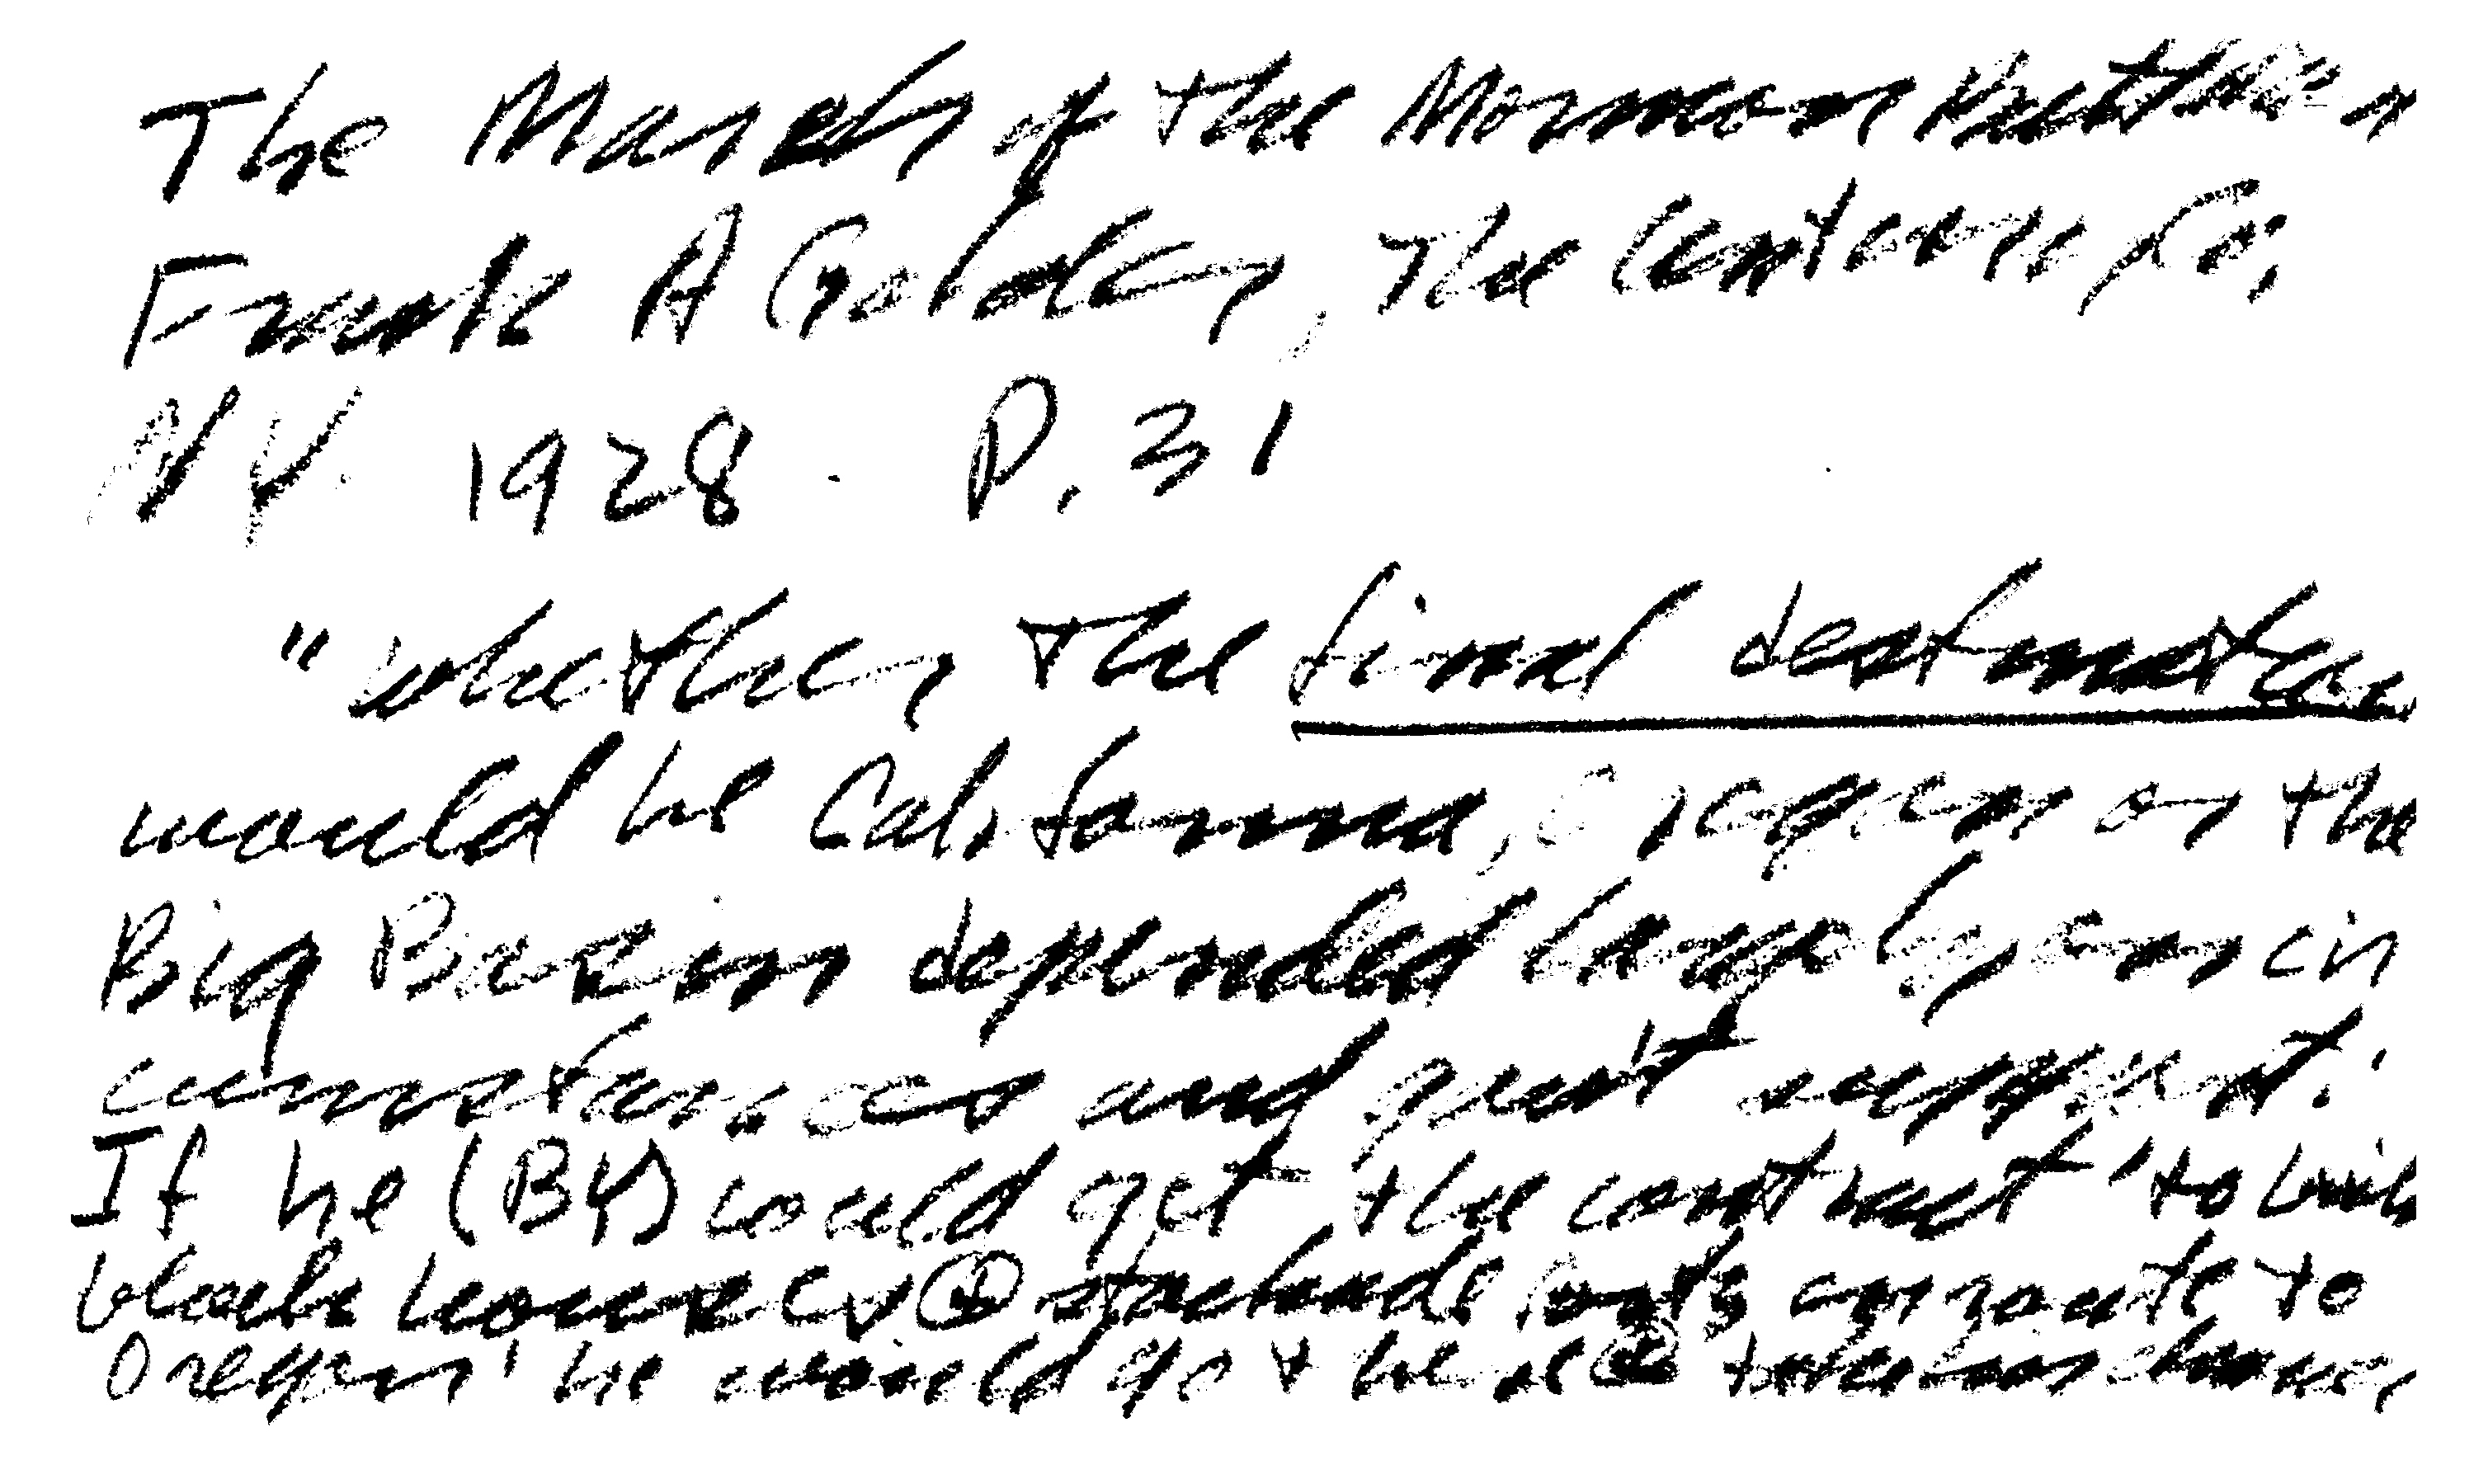 The March of the Mormon Battalion
Frank A Golder, The Century Co,
N Y. 1928. P. 31
"whether the final destination
would be California, Oregon or the
Big Basin depended largely on cir
cumstances and gov't support.'
If he (BY) could get the contract 'to build
block houses & stockade forts enroute to
Oregon' he would go there & take his chances